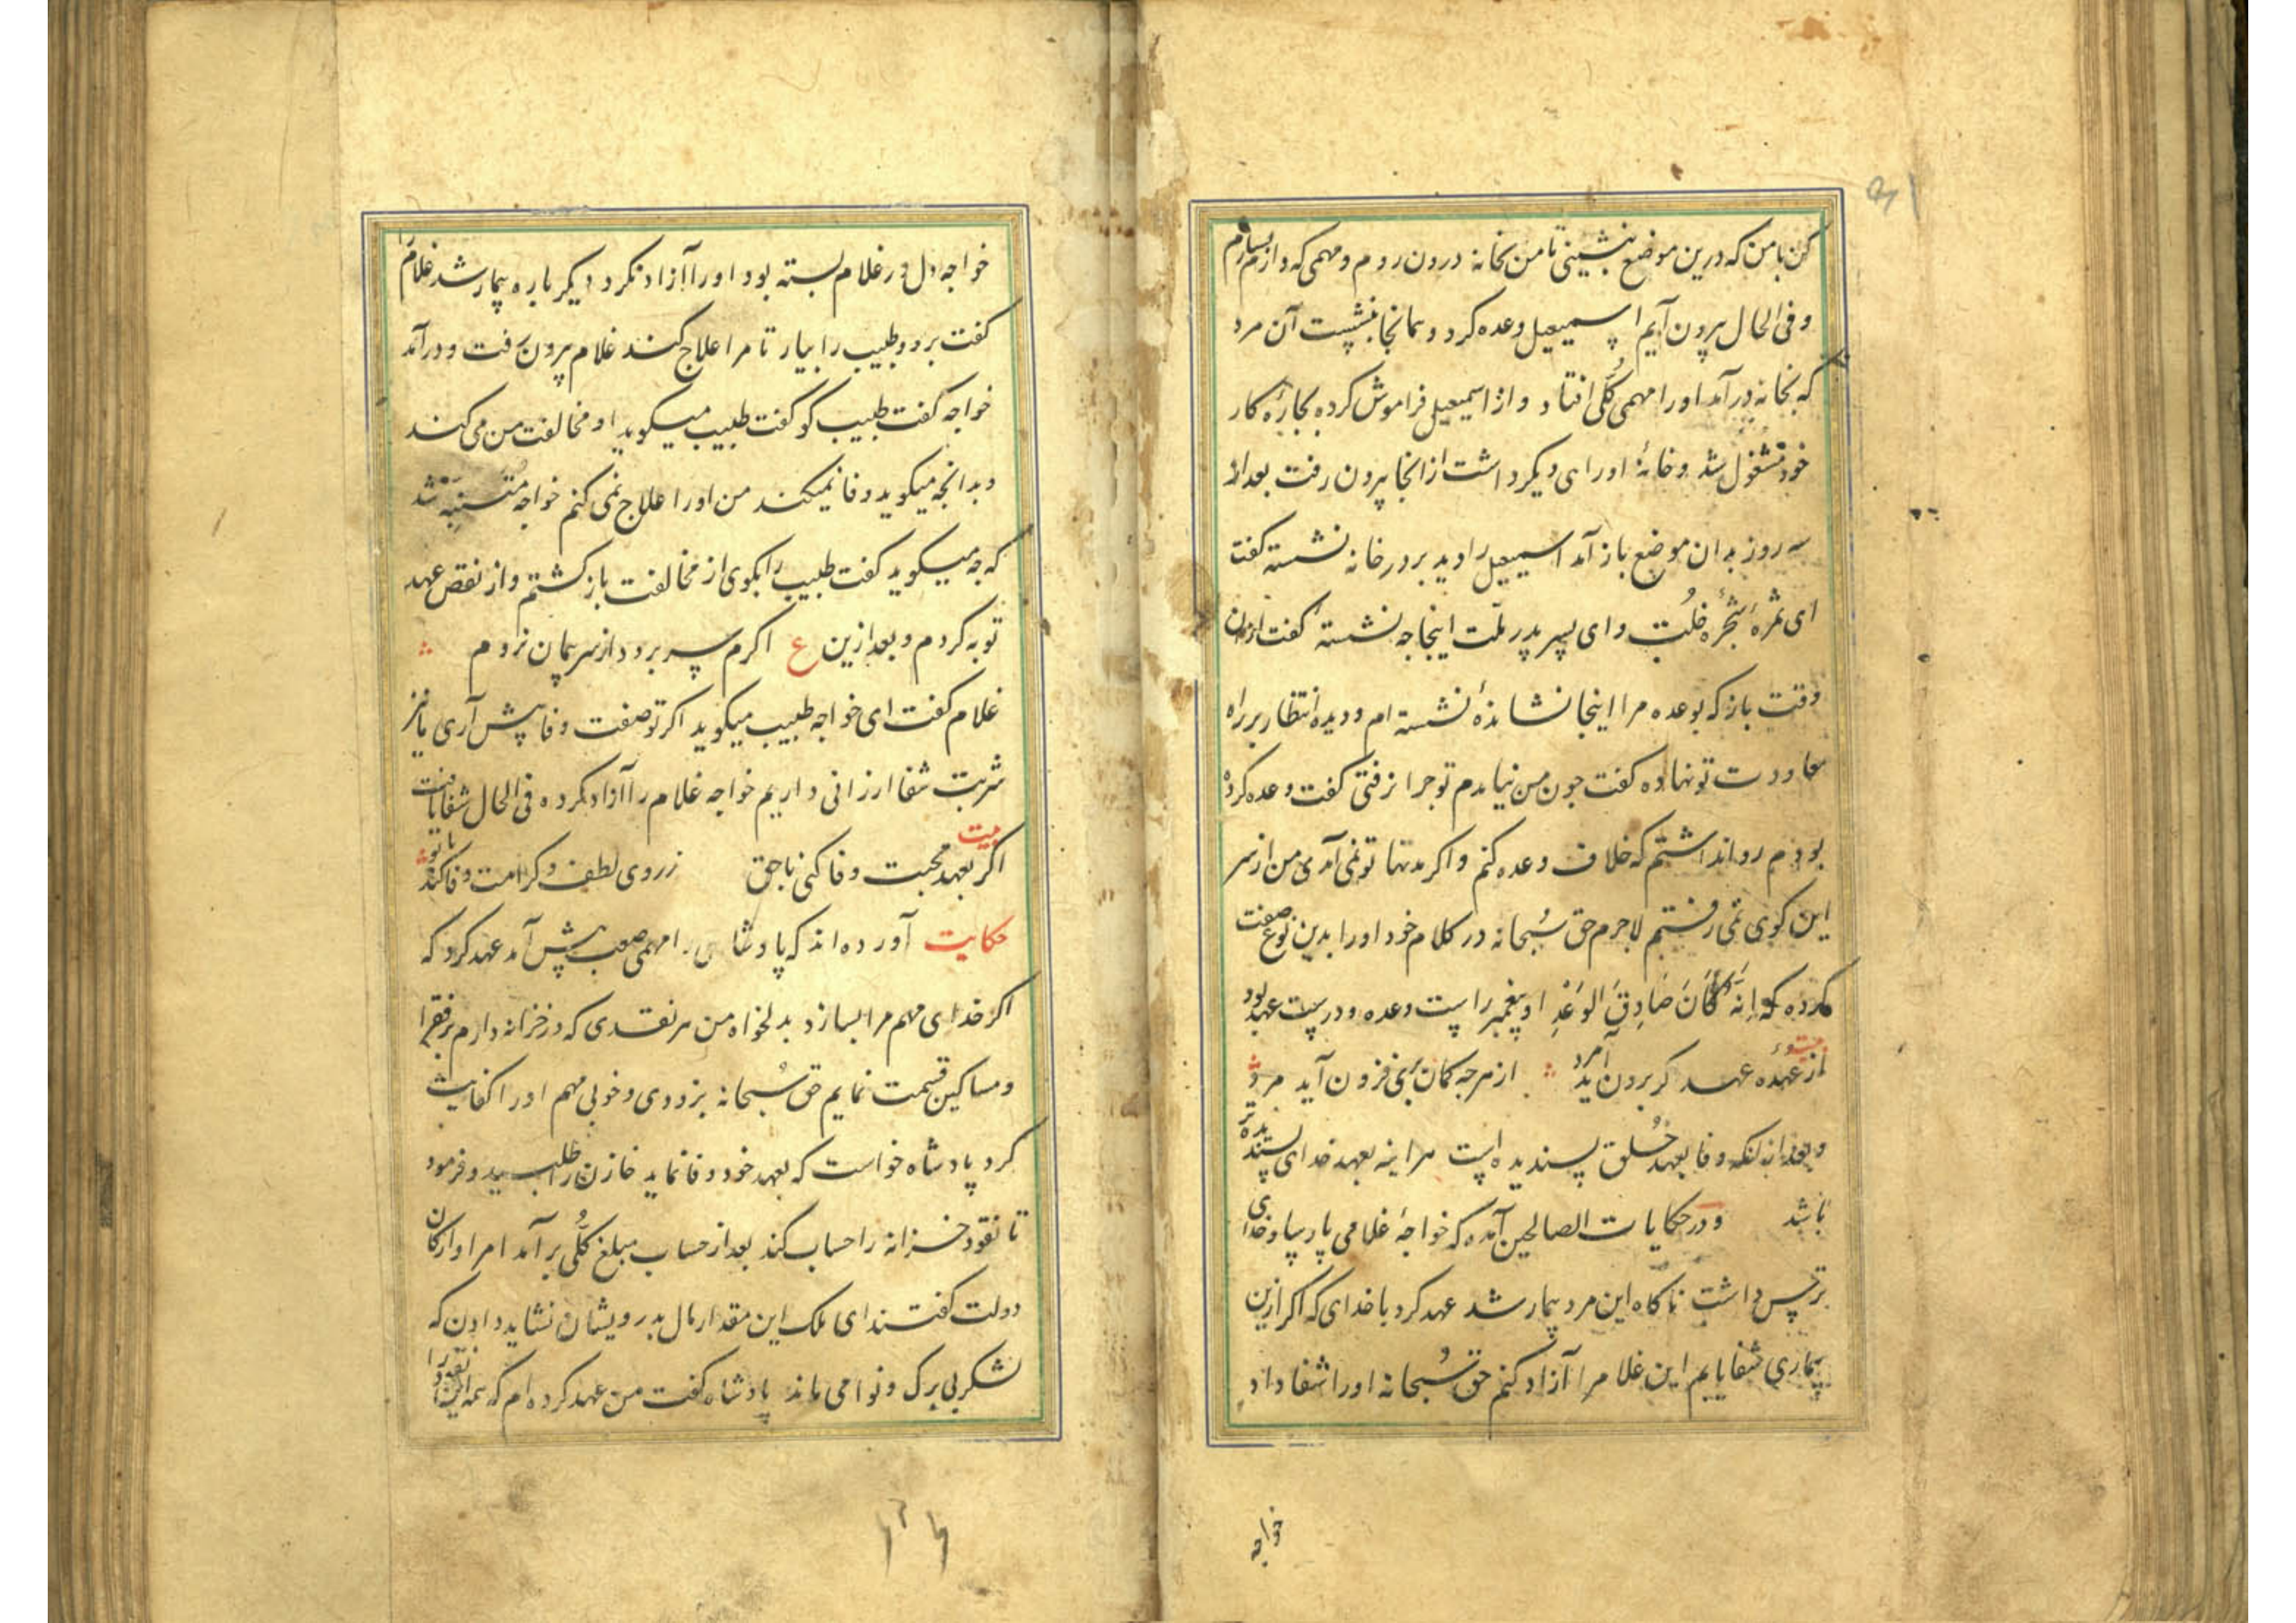 کن با من که درین موضع بنشینی تا من بخانه درون روم و مهمی که دارم بسازم
و فی الحال بیرون آیم اسمعیل وعده کرد و همانجا بنشست آن مرد
که بخانه درآمد او را مهمی کلی افتاد و از اسمعیل فراموش کرده بچارهٔ کار
خود مشغول شد و خانهٔ او رای دیگر داشت از انجا بیرون رفت بعد از
سه روز بدان موضع باز آمد اسمعیل را دید بر در خانه نشسته گفت
ای ثمرهٔ شجرهٔ خلت و ای پسر پدر ملت اینجا چه نشستهٔ گفت از ان
وقت باز که بوعده مرا اینجا نشاندهٔ نشسته ام و دیده انتظار بر راه
معاودت تو نهاده گفت چون من نیامدم تو چرا نرفتی گفت وعده کرده
بودم روا نداشتم که خلاف وعده کنم و اگر مدتها تو نمی آمدی من از سر
این کوی نمی رفتم لاجرم حق سُبحانه در کلام خود او را بدین نوع صفت
کرده که اِنَّهُ کَانَ صَادِقَ الوَعْدِ او پیغمبر راست وعده و درست عهد بود
از عهده عهد گر برون آید مرد از هرچه گمان بری فزون آید مرد
و بعد از انکه وفا بعهد خلق پسندیده است هراینه بعهد خدای پسندیده تر
باشد و در حکایات الصالحین آمده که خواجهٔ غلامی پارسا و خدای
ترس داشت ناگاه این مرد بیمار شد عهد کرد با خدای که اگر ازین
بیماری شفا یابم این غلام را آزاد کنم حق سُبحانه او را شفا داد
خواجه
خواجه دل در غلام بسته بود او را آزاد نکرد دیگر باره بیمار شد غلام را
گفت برو و طبیب را بیار تا مرا علاج کند غلام بیرون رفت و درآمد
خواجه گفت طبیب کو گفت طبیب میگوید او مخالفت من می کند
و بدانچه میگوید وفا نمیکند من او را علاج نمی کنم خواجه متنبه شد
که چه میگوید گفت طبیب را بگوی از مخالفت باز گشتم و از نقص عهد
توبه کردم و بعد ازین ع اگرم سر برود از سر پیمان نروم
غلام گفت ای خواجه طبیب میگوید اگر تو صفت وفا پیش آری ما نیز
شربت شفا ارزانی داریم خواجه غلام را آزاد کرده فی الحال شفا یافت
بیت
اگر بعهد محبت وفا کنی با حق ز روی لطف و کرامت وفا کند با تو
حکایت آورده اند که پادشاهی را مهمی صعب پیش آمد عهد کرد که
اگر خدای مهم مرا بسازد بدلخواه من هر نقدی که در خزانه دارم بر فقرا
و مساکین قسمت نمایم حق سُبحانه بزودی و خوبی مهم او را کفایت
کرد پادشاه خواست که بعهد خود وفا نماید خازن را طلبید و فرمود
تا نقود خزانه را حساب کند بعد از حساب مبلغ کلی برآمد امرا و ارکان
دولت گفتند ای ملک این مقدار مال بدرویشان نشاید دادن که
لشکر بی برگ و نوا می ماند پادشاه گفت من عهد کرده ام که همه این نقود را